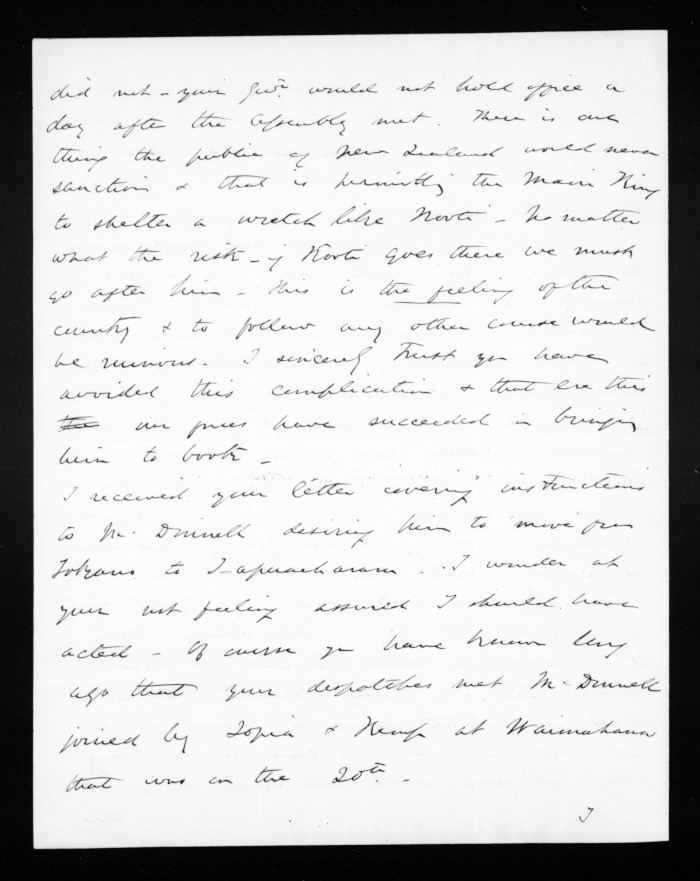 did not - your Govt. would not hold office a
day after the Assembly met. There is one
thing the public of New Zealand would never
sanction & that is permitting the Maori King
to shelter a wretch like Kooti - No matter
what the risk - if Kooti goes there we must
go after him - this is the feeling of the
country & to follow any other course would
be ruinous. I sincerely trust you have
avoided this complication & that ere this
the our forces have succeeded in bringing
him to book -
I received your letter covering instructions
to McDonnell desiring him to move from
Tokano to Tapuaeharuru. I wonder at
your not feeling assured I should have
acted - Of course you have known long
ago that your despatches met McDonnell
joined by Topia & Kemp at Waimahana
that was on the 20th. -
I